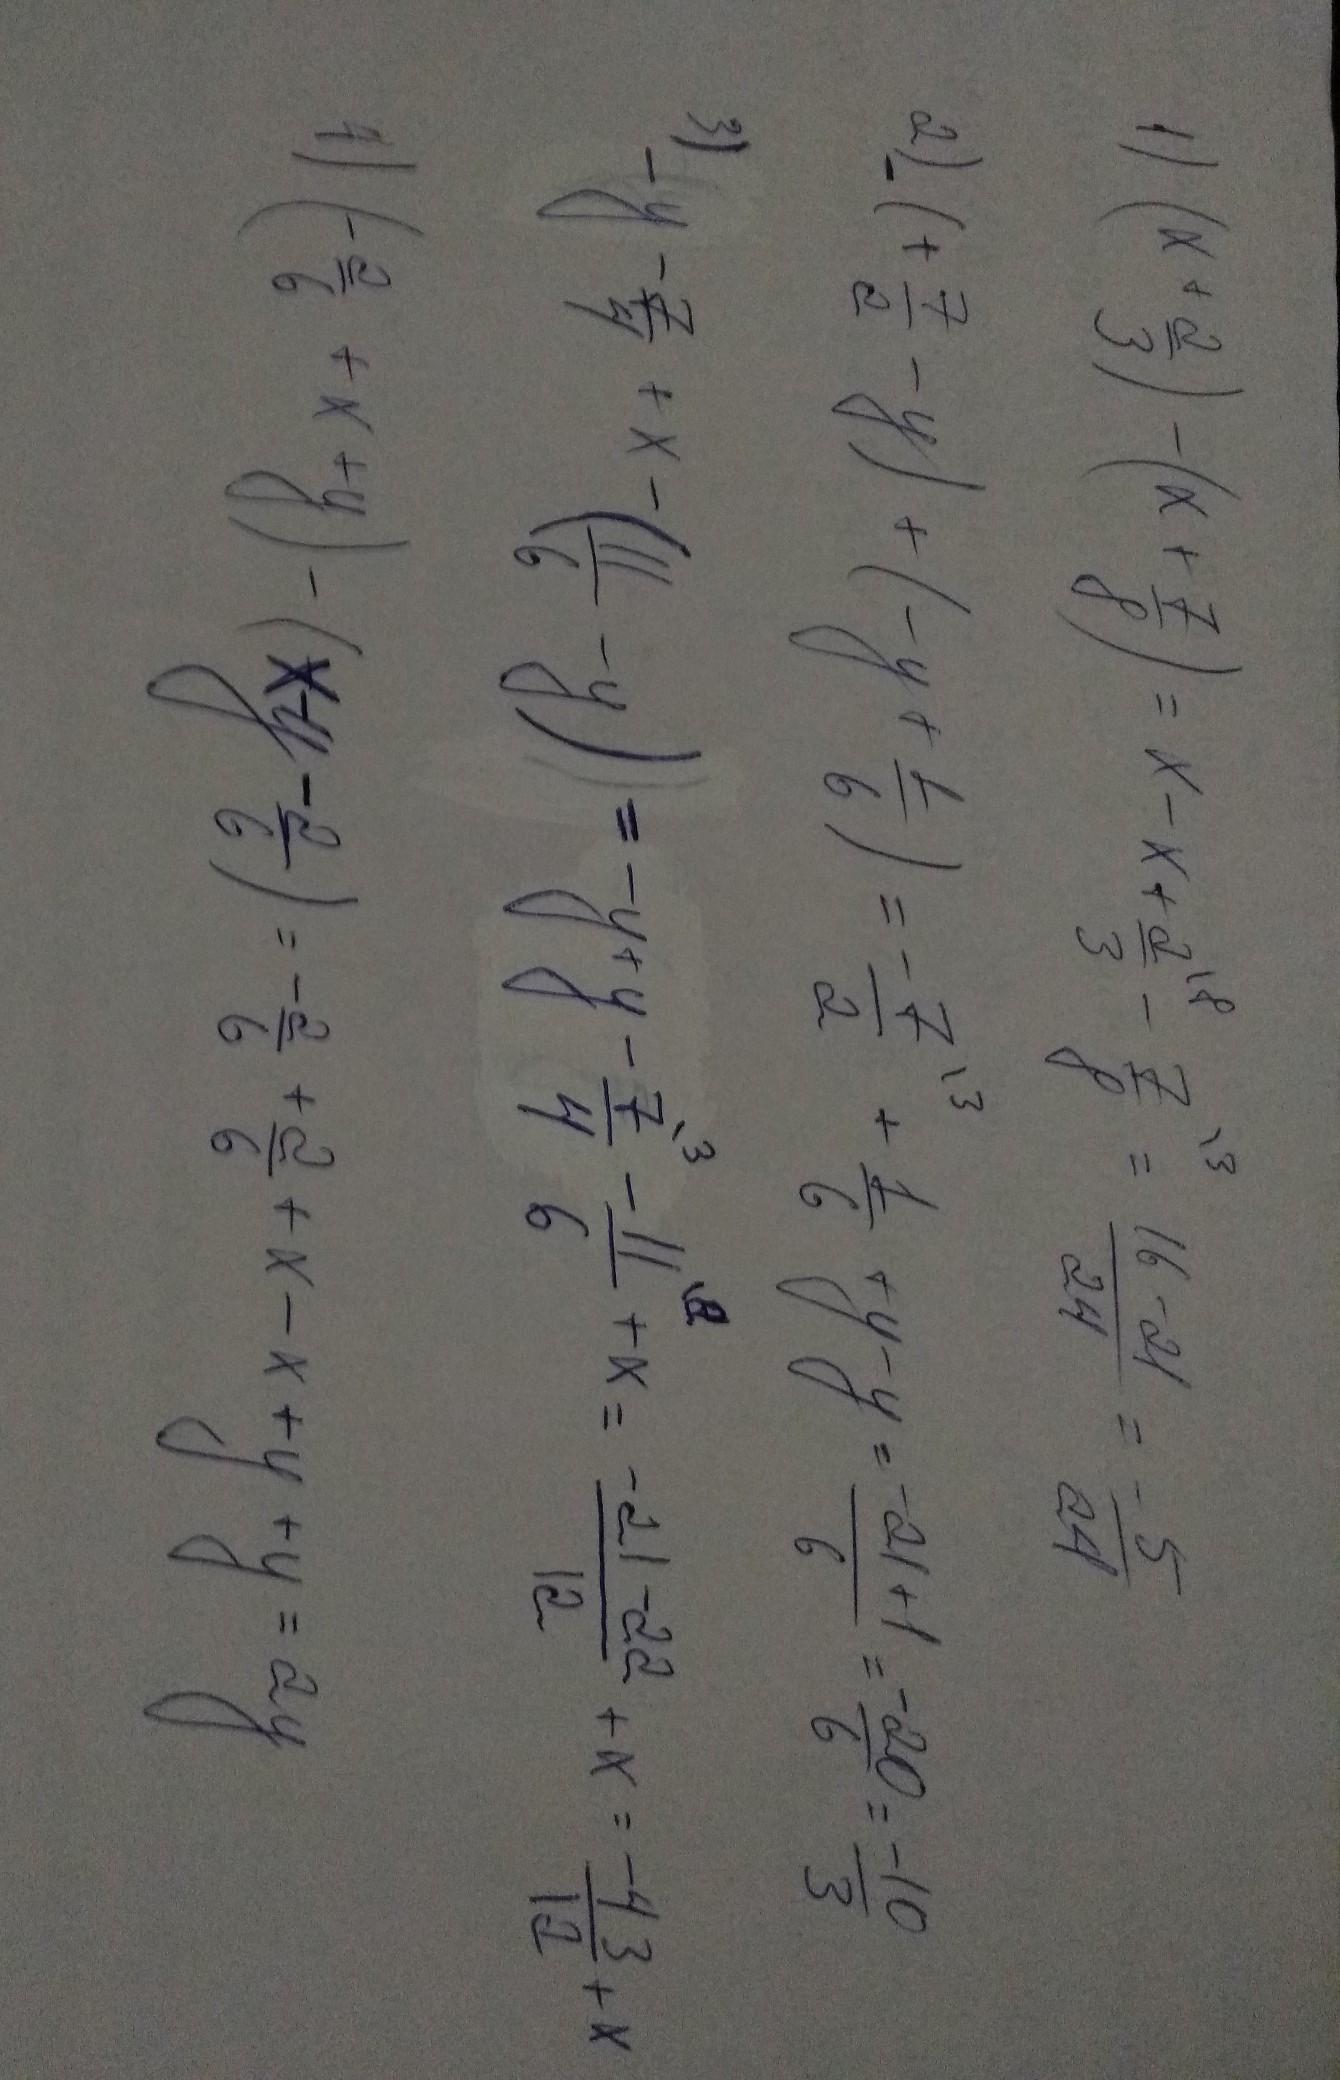 1) (x + 2/3) - (x + 7/8) = x - x + 2/3 \8 - 7/8 \3 = 16 - 21/24 = - 5/24
2) - (+ 7/2 - y) + (- y + 1/6) = - 7/2 \3 + 1/6 + y - y = - 21 + 1/6 = - 20/6 = - 10/3
3) - y - 7/4 + x - (11/6 - y) = - y + y - 7/4 \3 - 11/6 \2 + x = - 21 - 22/12 + x = - 43/12 + x
4) (- 2/6 + x + y) - (x - y - 2/6) = - 2/6 + 2/6 + x - x + y + y = 2y